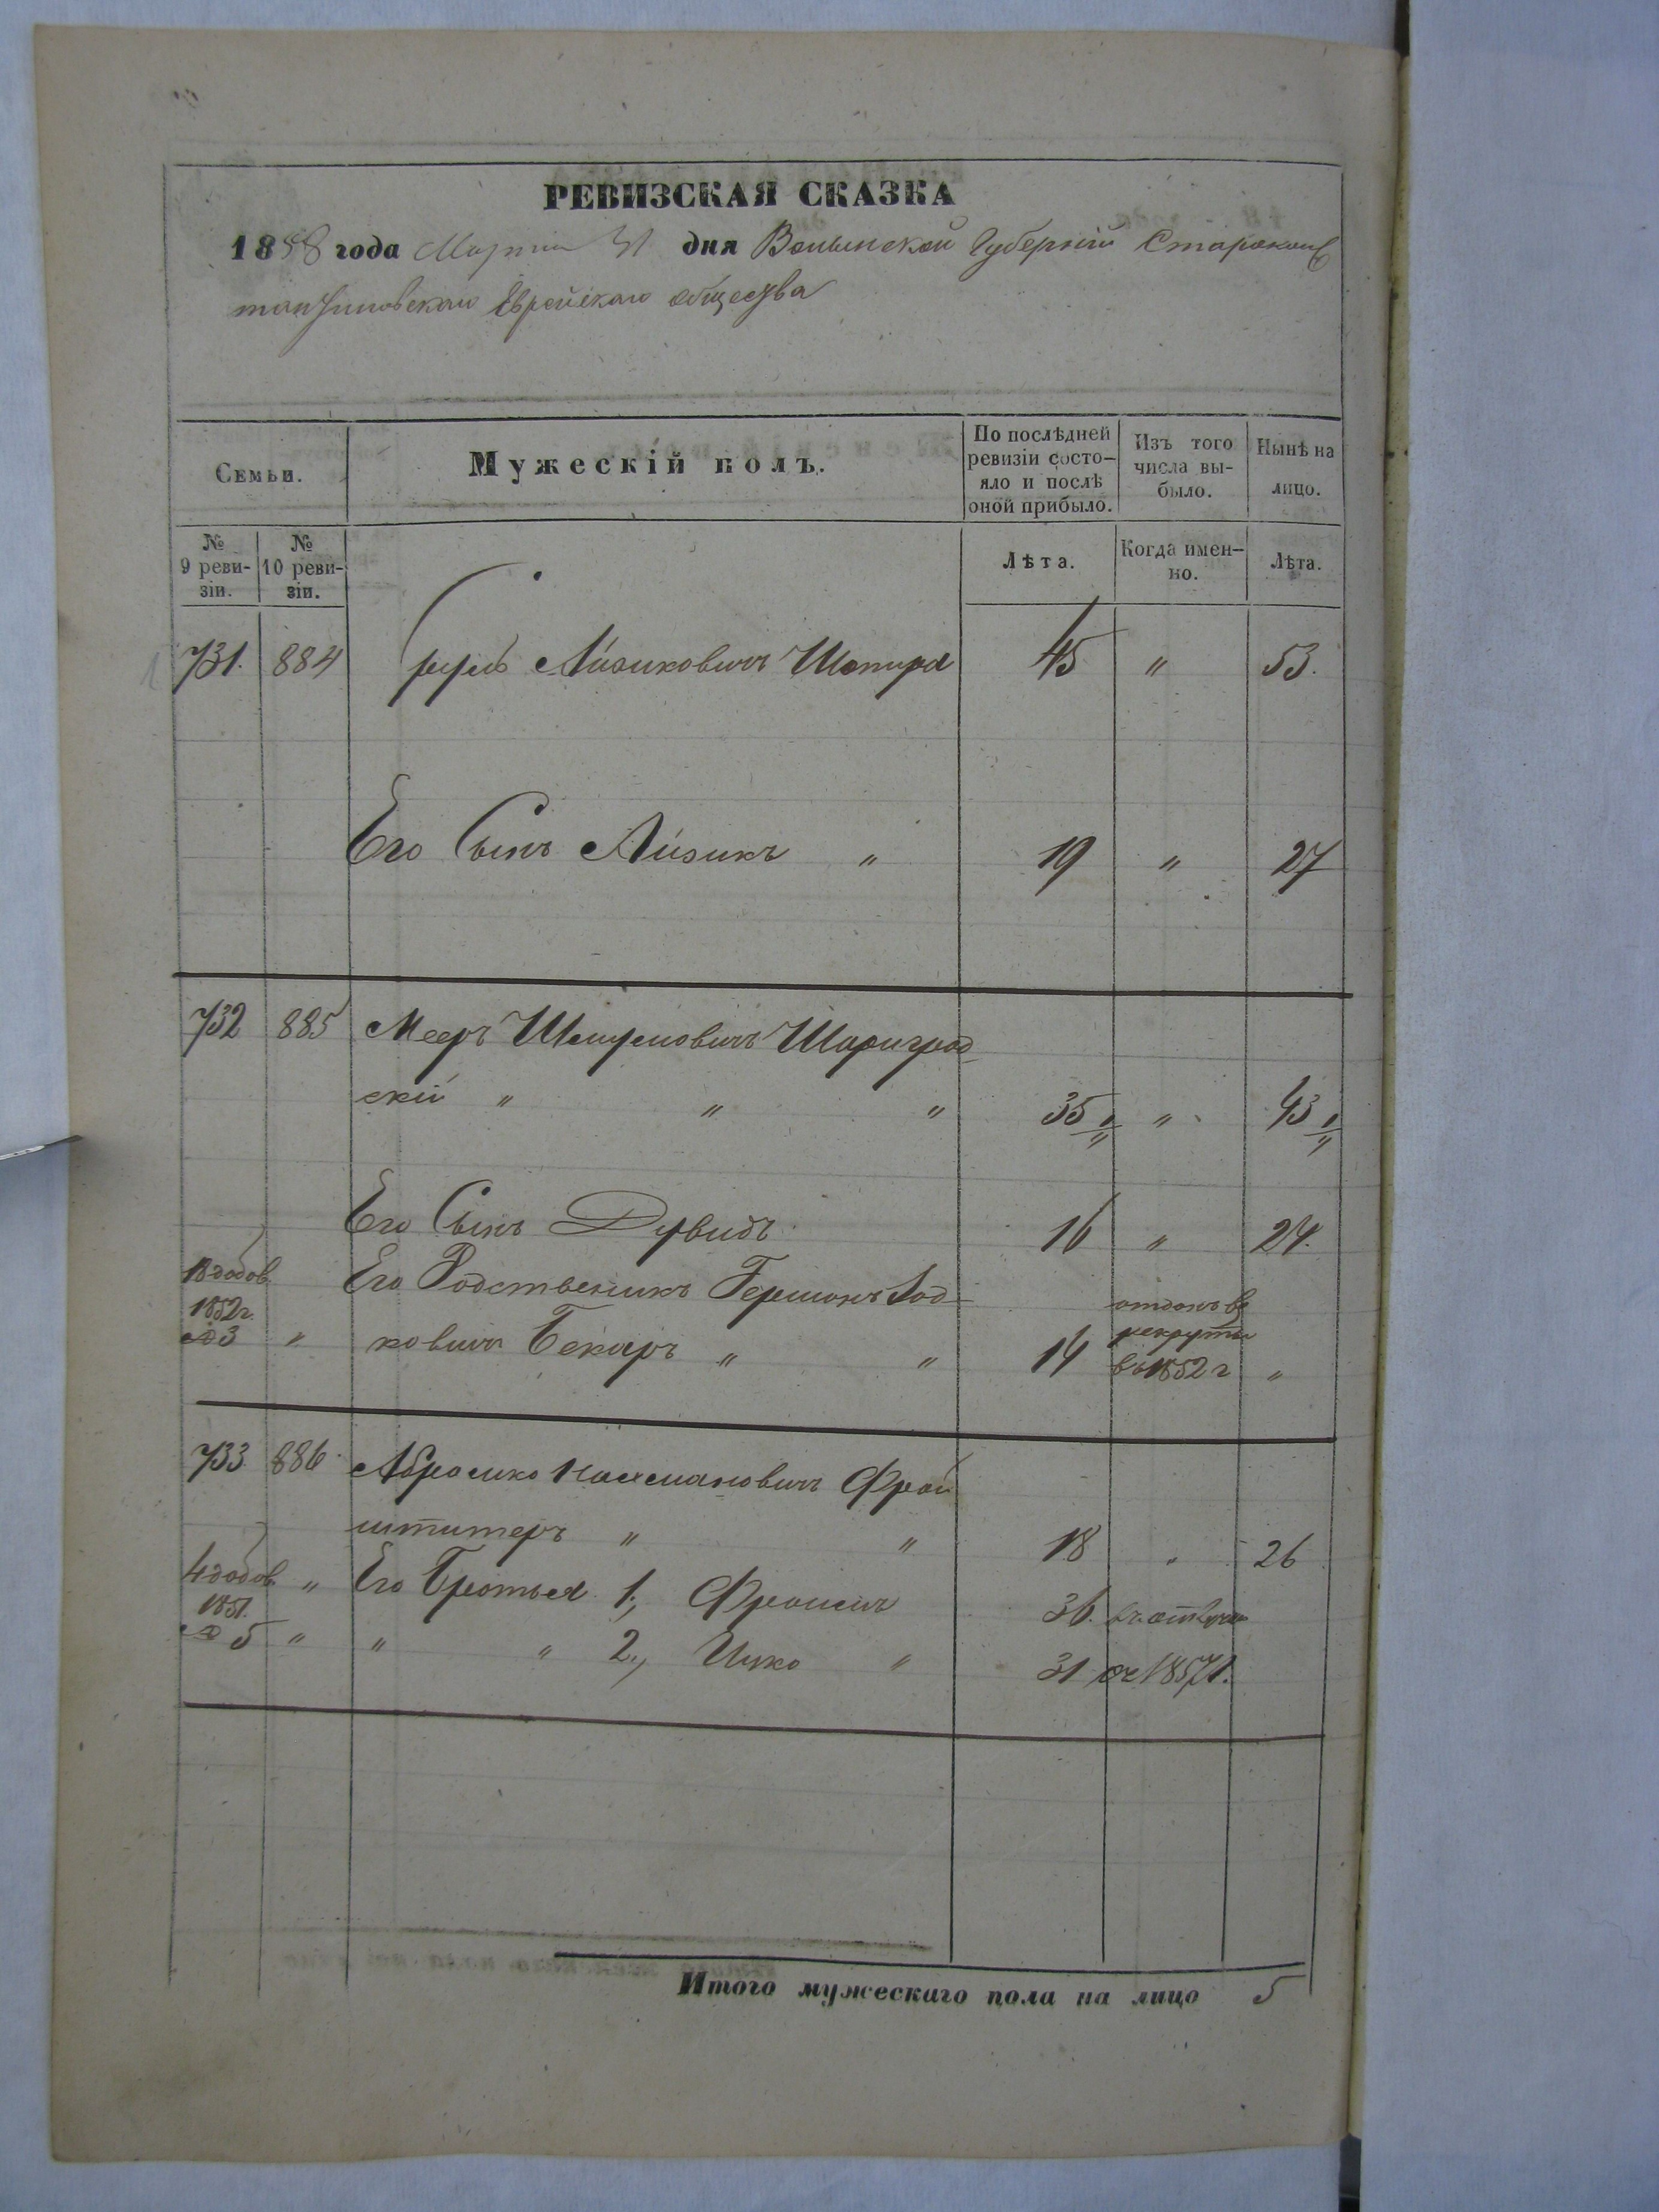 РЕВИЗСКАЯ СКАЗКА
1858 года Марта 31 дня Волынской Губернiи Старокон
тантиновскаго Еврейскаго общества
Семьи.
Мужескiй полъ.
По послѣдней ревизiи состо- яло и послѣ оной прибыло.
Изъ того числа вы- было.
Нынѣ на лицо.
№ 9 реви- зiи.
№ 10 реви- зiи.
Лѣта.
Когда имен- но.
Лѣта.
731. 884 Айзиковичъ Шапира 45 " 53.
Его Сынъ Айзикъ " 19 " 27
732 885 Мееръ Шмулиовичъ Шаригрод
скiй " " " 35 " 43
Его Сынъ Дувидъ 16 " 24.
18 добов. Его Родственикъ Гершонъ
1852 г. отданъ въ
№ 3 " ковичъ Бекеръ " " 14 рекруты
въ 1852 г "
733 886 Абрамко Нахмановичъ Фрай
штитеръ " " 18 " 26
4 добов. " Его Братья 1., Фроимъ 36.
1851.
№ 5 " " " 2., Ицко " 31 1857 г.
Итого мужескаго пола на лицо 5